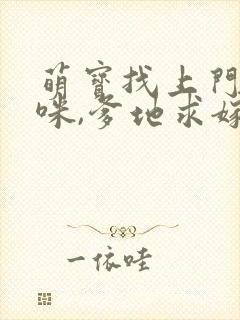 萌寶找上門
咪,爹地求嫁
一依哇